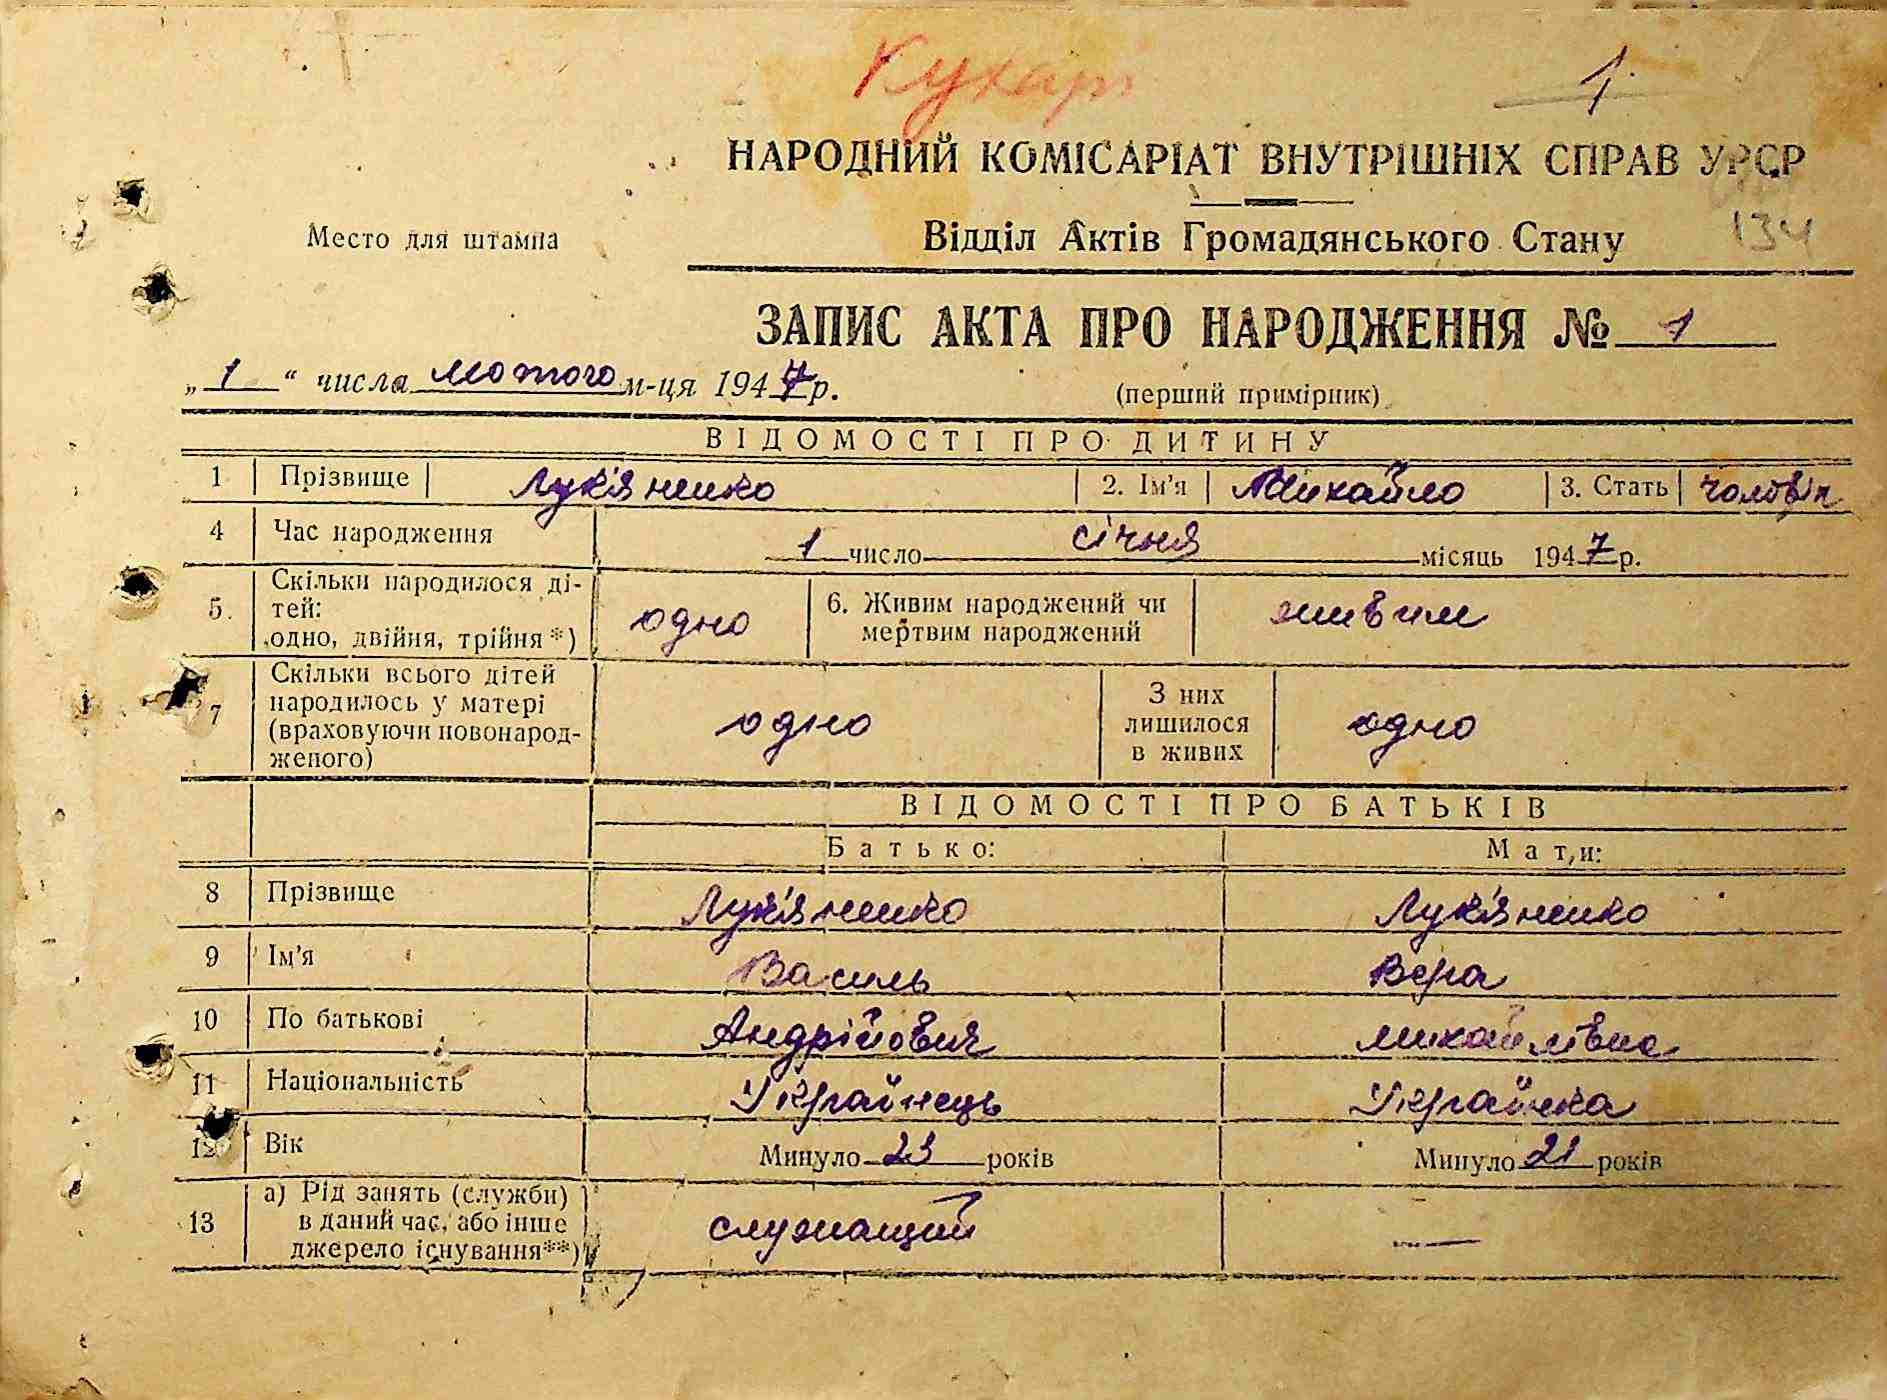 Кухарі
1
НАРОДНИЙ КОМІСАРІАТ ВНУТРІШНІХ СПРАВ УРСР
Место для штампа
Відділ Актів Громадянського Стану
134
ЗАПИС АКТА ПРО НАРОДЖЕННЯ № 1
„ 1 “ числа лютого м-ця 1947 р.
(перший примірник)
ВІДОМОСТІ ПРО ДИТИНУ
1 Прізвище Лук'яненко 2. Ім'я Михайло 3. Стать чоловіч
4 Час народження 1 число січня місяць 1947 р.
5. Скільки народилося ді-
тей:
одно, двійня, трійня*) одно 6. Живим народжений чи
мертвим народжений живим
7 Скільки всього дітей
народилось у матері
(враховуючи новонарод-
женого) одно З них
лишилося
в живих одно
ВІДОМОСТІ ПРО БАТЬКІВ
Батько: Мати:
8 Прізвище Лук'яненко Лук'яненко
9 Ім'я Василь Вера
10 По батькові Андрійович Михайлівна
11 Національність Українець Українка
12 Вік Минуло 23 років Минуло 21 років
13 а) Рід занять (служби)
в даний час, або інше
джерело існування**) служащий —